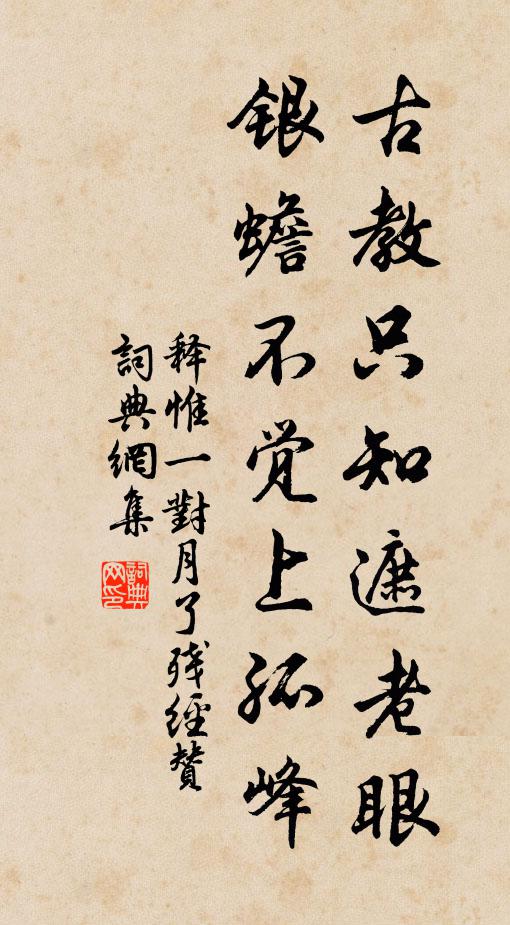 古教只知遮老眼
银蟾不觉上孤峰
释惟一對月了残经赞
詞典網集
詞典
网印